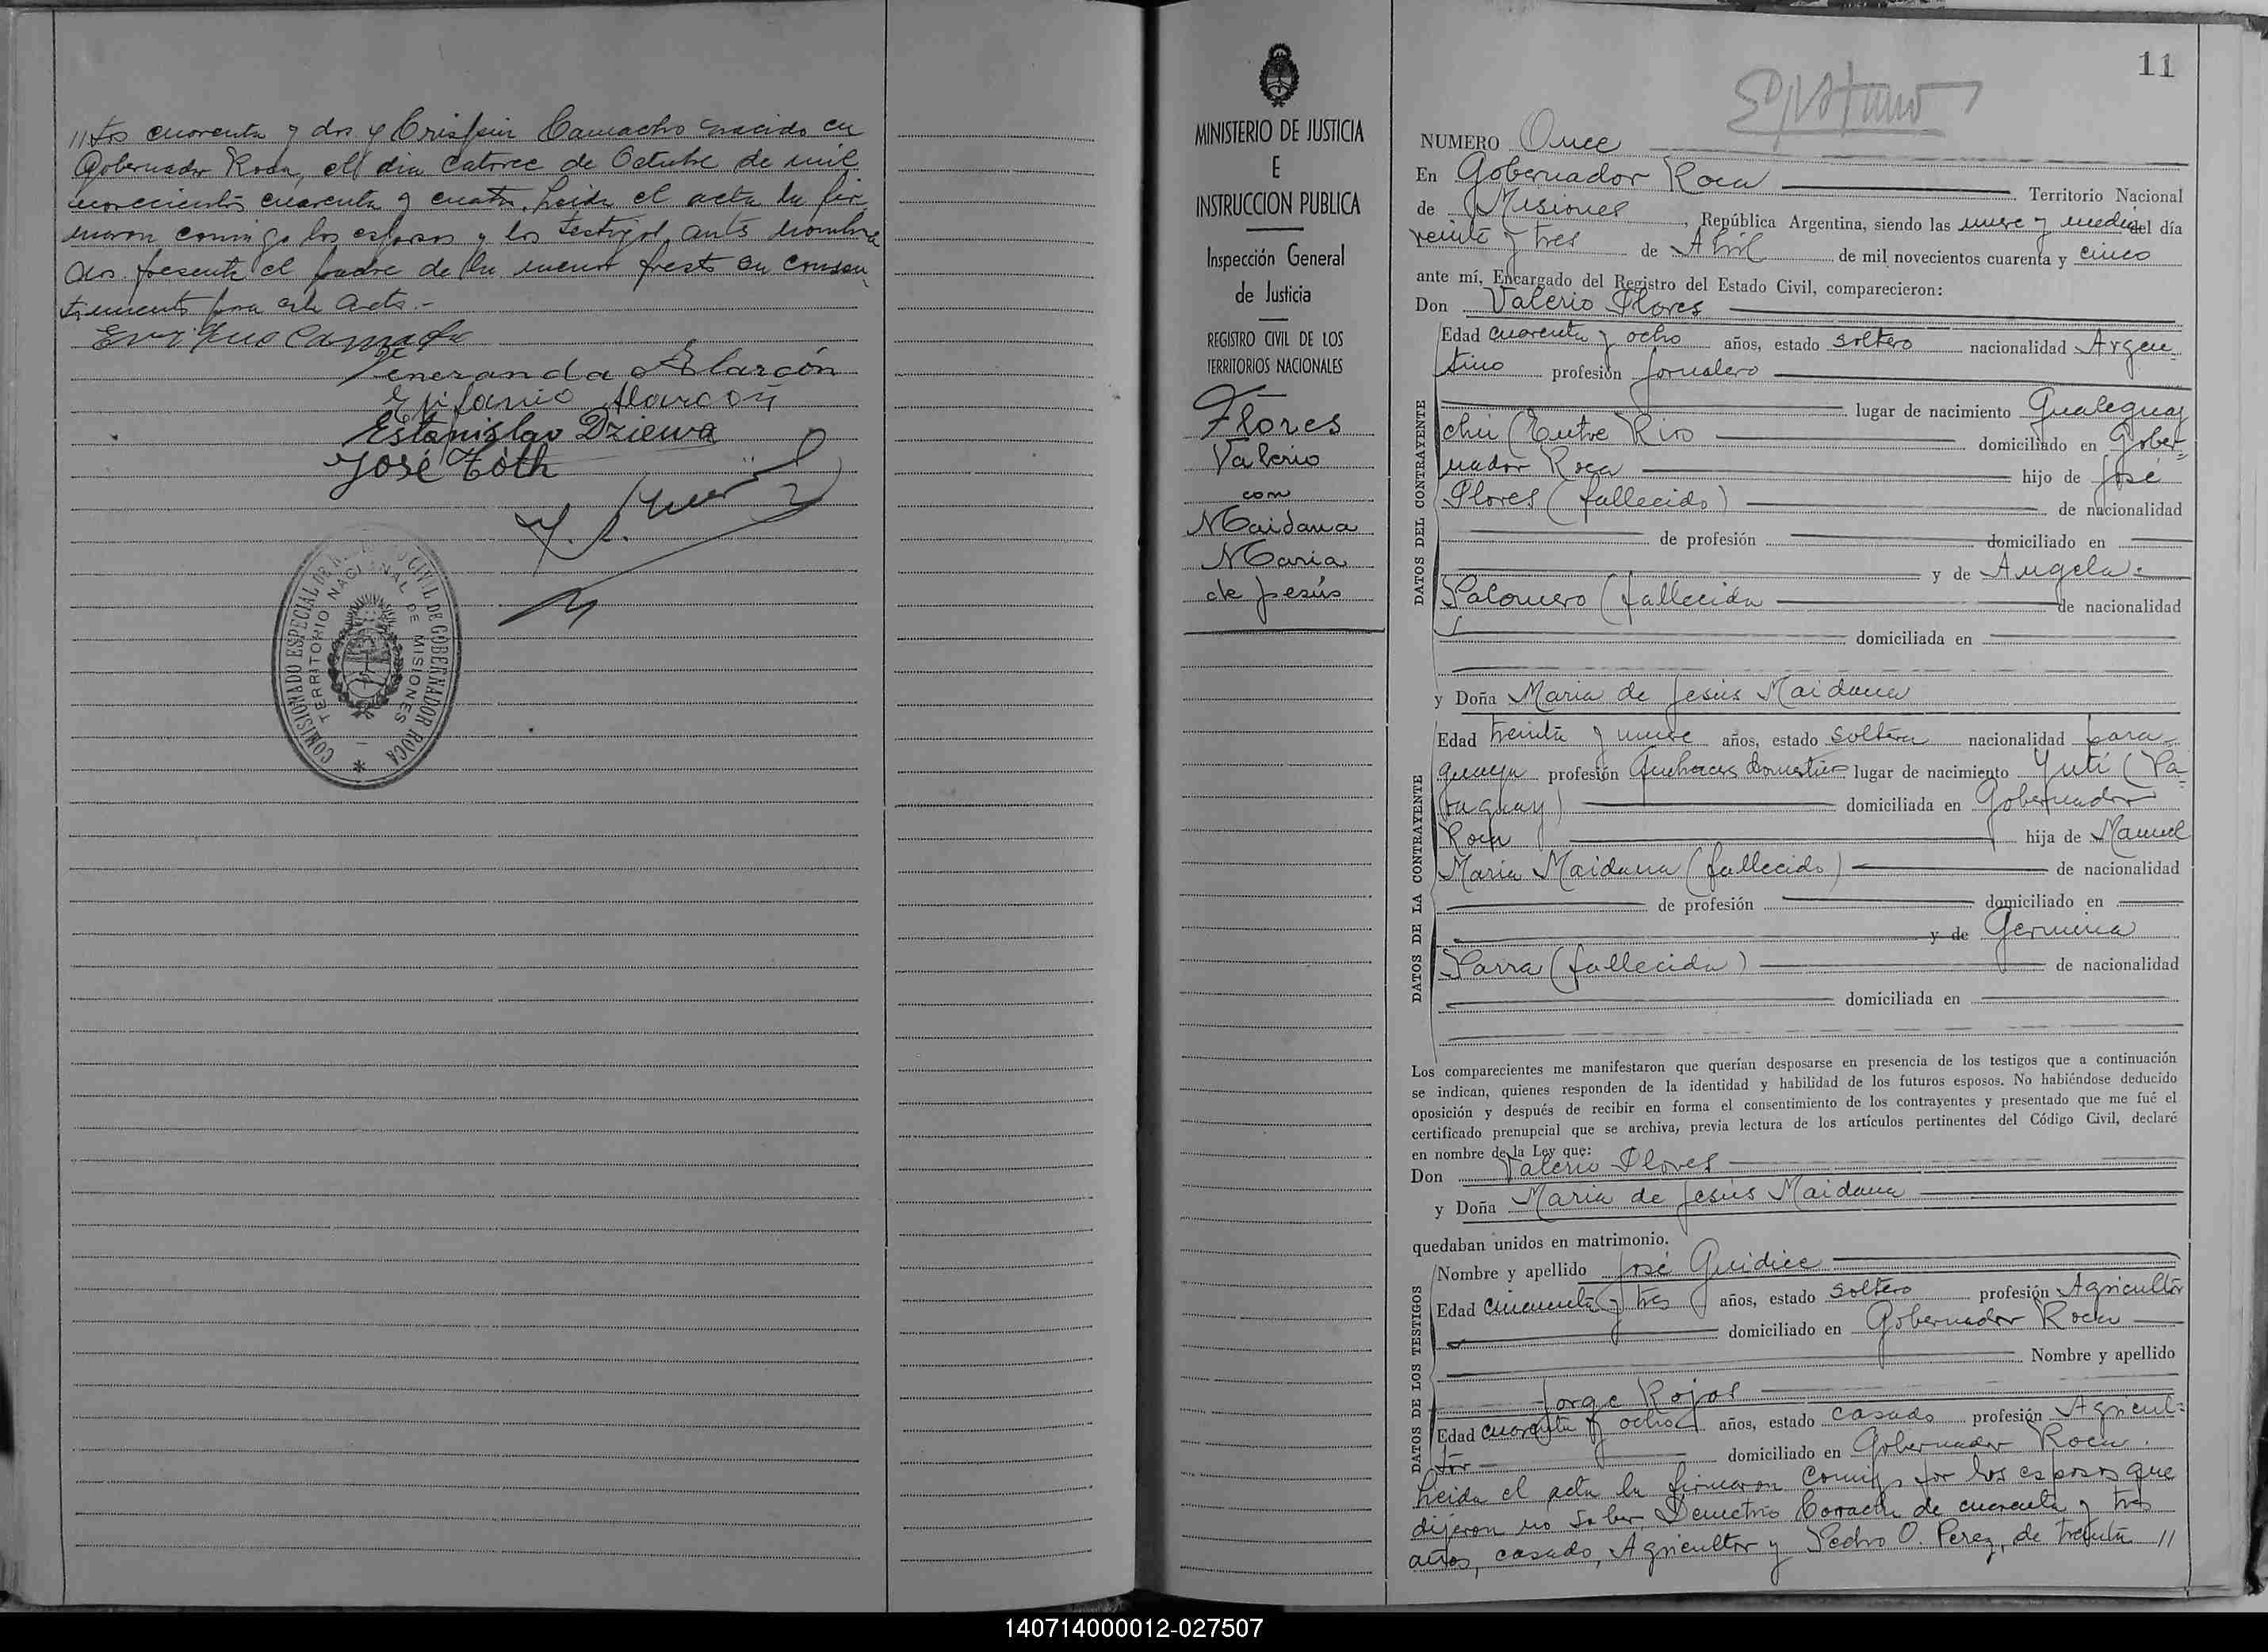 //tos cuarenta y dos y Crispin Camacho nacido en
Gobernador Roca, el dia catorce de Octubre de mil
novecientos cuarenta y cuatro. Leida el acta la fir
maron conmigo los esposos y los testigos antes nombra
dos. presente el padre de la menor presto su consen
timiento para este acto.-
Enrique Camacho
Veneranda Alarcón
Epifanio Alarcón
Estanislao Dziewa
José Tóth
COMISIONADO ESPECIAL DE CIVIL DE GOBERNADOR ROCA
TERRITORIO NACIONAL DE MISIONES
MINISTERIO DE JUSTICIA
E
INSTRUCCION PUBLICA
Inspección General
de Justicia
REGISTRO CIVIL DE LOS
TERRITORIOS NACIONALES
Flores
Valerio
con
Maidana
Maria
de Jesús
11
NUMERO Once
En Gobernador Roca Territorio Nacional
de Misiones, República Argentina, siendo las nueve y media del día
veinte y tres de Abril de mil novecientos cuarenta y cinco
ante mí, Encargado del Registro del Estado Civil, comparecieron:
Don Valerio Flores
DATOS DEL CONTRAYENTE
Edad cuarenta y ocho años, estado soltero nacionalidad Argen
tino profesión jornalero
lugar de nacimiento Gualeguay
chú (Entre Rios domiciliado en Gober-
nador Roca hijo de José
Flores (fallecido) de nacionalidad
de profesión domiciliado en
y de Angela
Palomero (fallecida de nacionalidad
domiciliada en
y Doña Maria de Jesús Maidana
DATOS DE LA CONTRAYENTE
Edad treinta y nueve años, estado soltera nacionalidad para-
guaya profesión Quehaceres domesticos lugar de nacimiento Yuti (Pa-
raguay) domiciliada en Gobernador
Roca hija de Manuel
Maria Maidana (fallecido) de nacionalidad
de profesión domiciliado en
y de Germina
Parra (fallecida) de nacionalidad
domiciliada en
Los comparecientes me manifestaron que querían desposarse en presencia de los testigos que a continuación
se indican, quienes responden de la identidad y habilidad de los futuros esposos. No habiéndose deducido
oposición y después de recibir en forma el consentimiento de los contrayentes y presentado que me fué el
certificado prenupcial que se archiva, previa lectura de los artículos pertinentes del Código Civil, declaré
en nombre de la Ley que:
Don Valerio Flores
y Doña Maria de Jesús Maidana
quedaban unidos en matrimonio.
DATOS DE LOS TESTIGOS
Nombre y apellido José Guidice
Edad cincuenta y tres años, estado soltero profesión Agricultor
domiciliado en Gobernador Roca
Nombre y apellido
Jorge Rojas
Edad cuarenta y ocho años, estado casado profesión Agricul-
tor domiciliado en Gobernador Roca.
Leida el acta la firmaron conmigo por los esposos que
dijeron no saber Demetrio de cuarenta y tres
años, casado, Agricultor y Pedro O. Perez, de treinta //
140714000012-027507